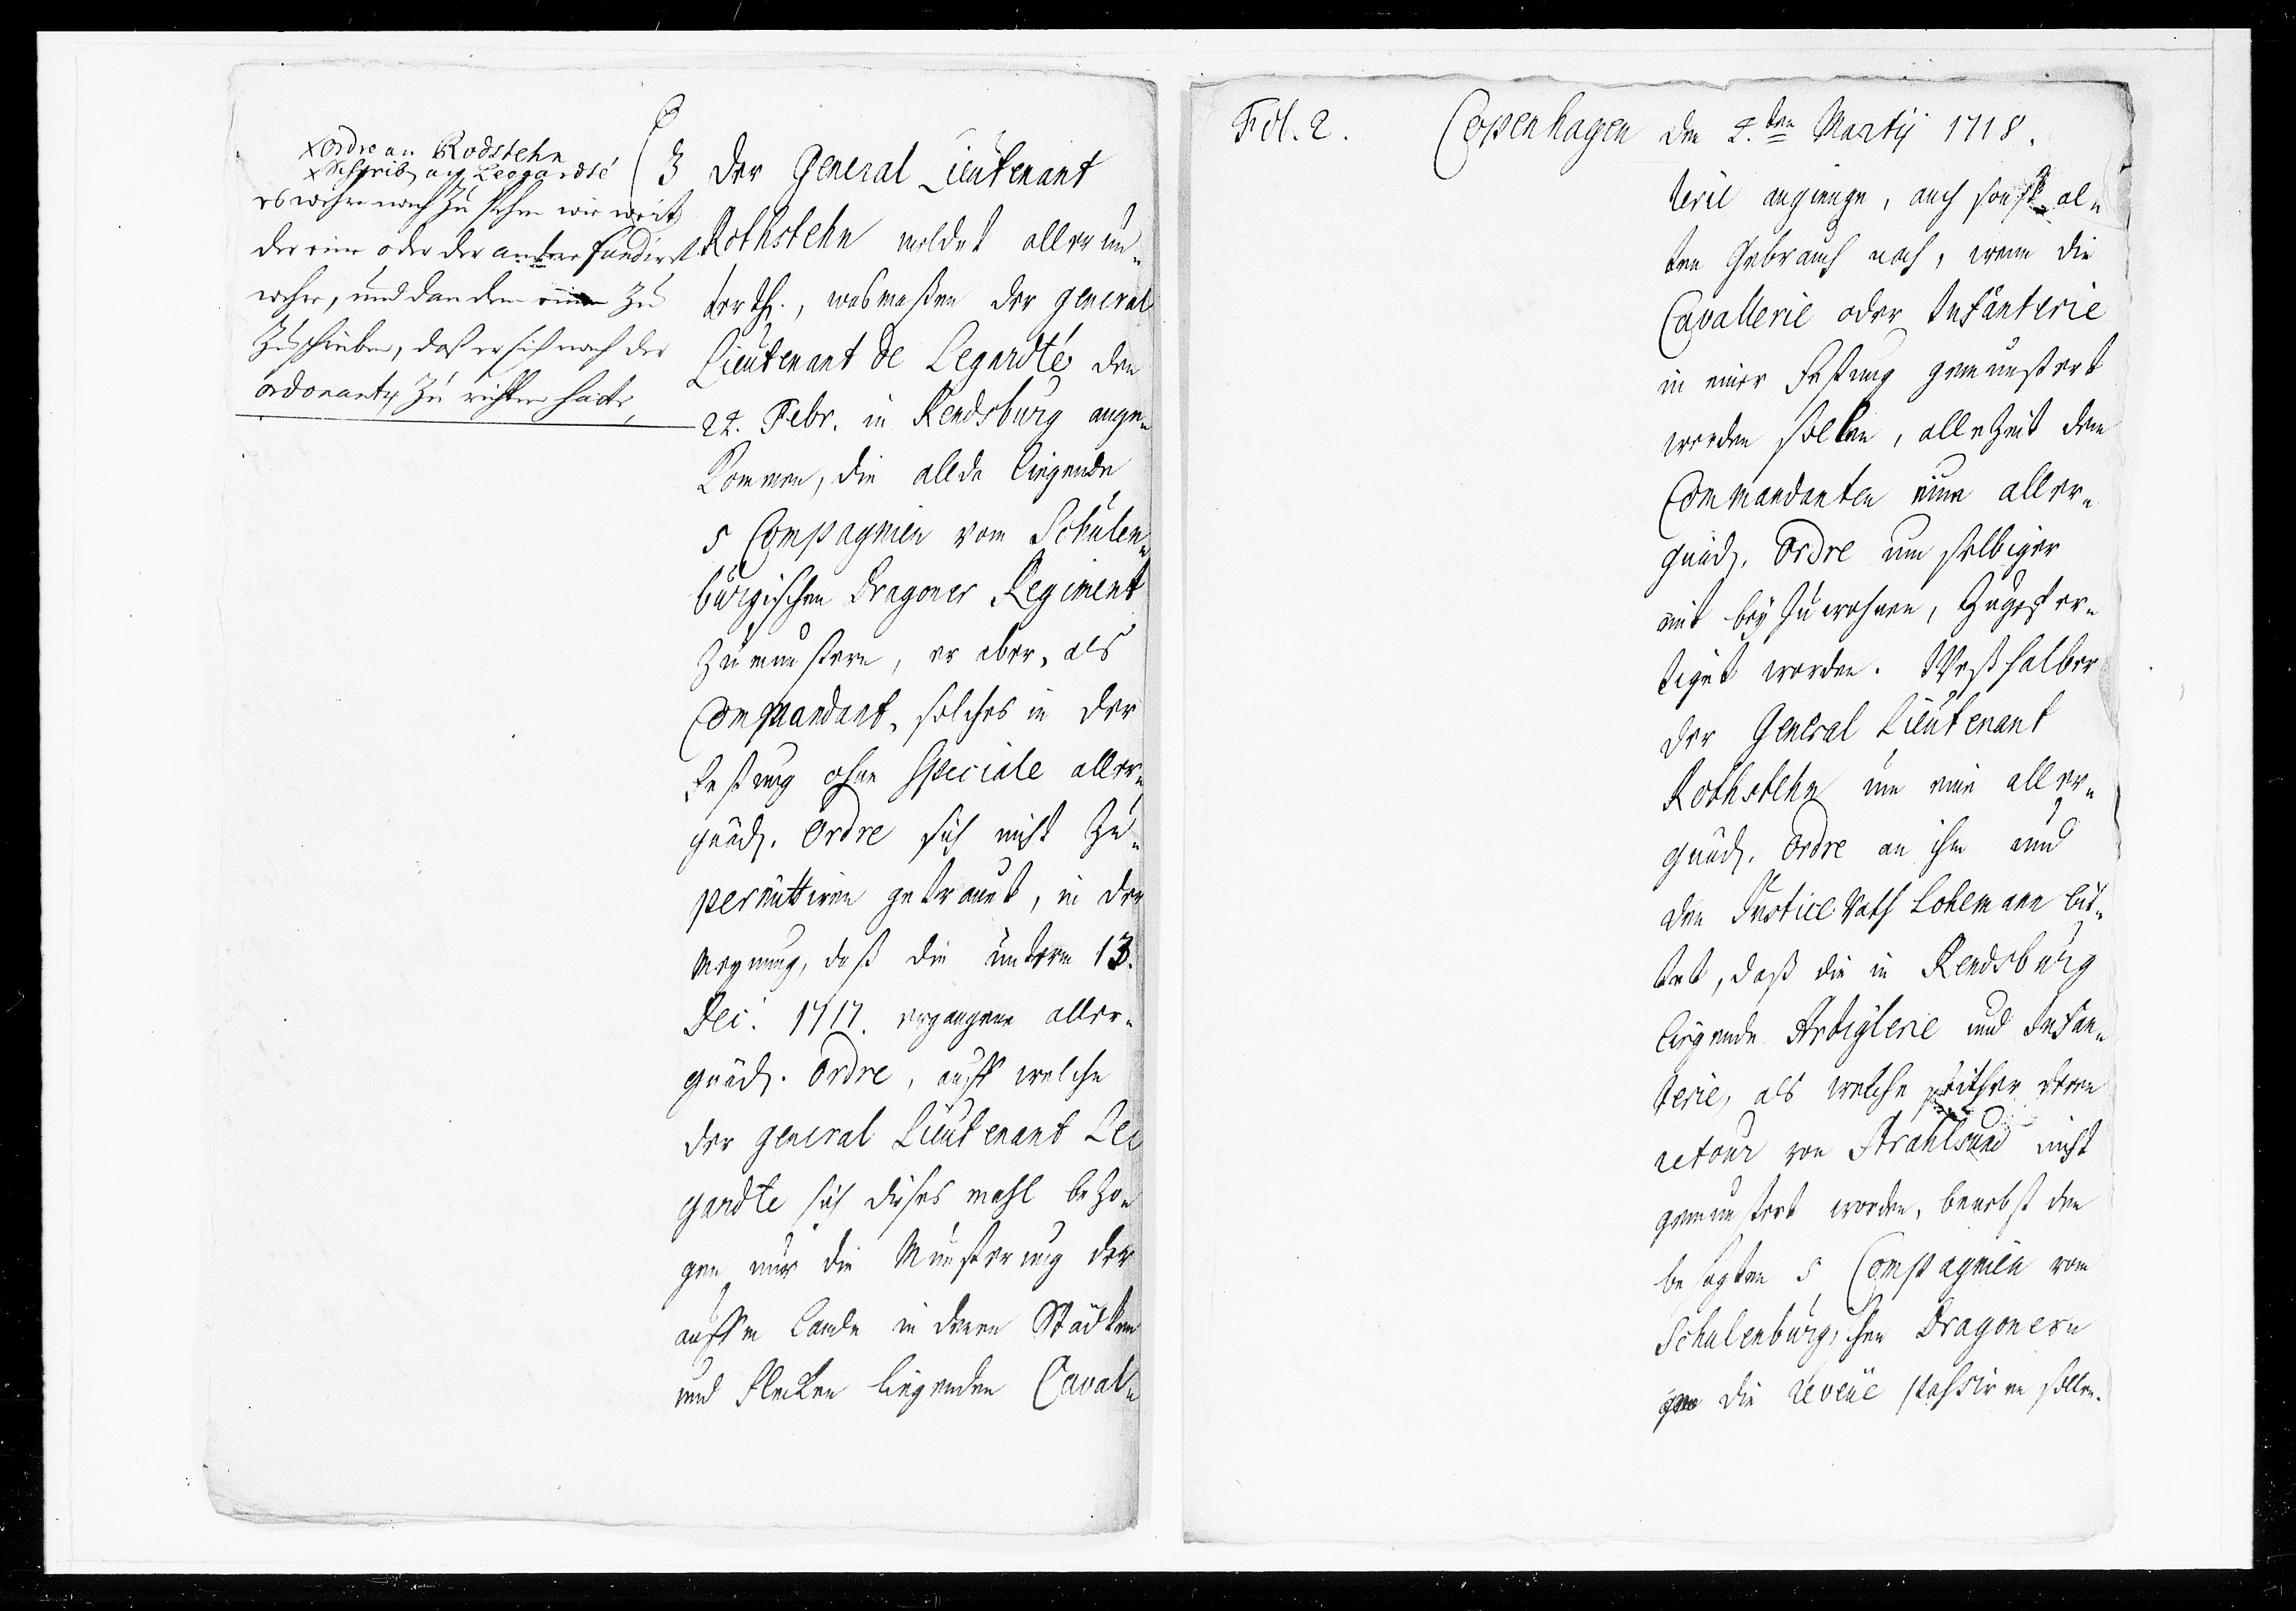 x ordre an Rodstehn
x Schreib an Legardté
es wehre nach zu sehen wie weit
der eine oder der andere fundiret
wehre, und dan dem einen zu
zuschreiben, daß er sich nach der
ordonantz zu richten hätte,
3 Der General Lieutenant
Rothstehn meldet allerun„
terth., wasmaßen der general
Lieutenant de Legardté den
22. Febr. in Rendsburg ange„
kommen, die allda liegende
5 Compagnien vom Schulen„
burgischen Dragoner Regiment
zu munstern, er aber, als
Commandant, solches in der
Festung ohne Speciale aller„
gnäd. Ordre sich nicht zu„
permittiren getrauet, in der
Meynung, daß die unterm 13.
Dec. 1717. ergangene aller„
gnäd. Ordre, auff welche
der general Lieutenant Le
gardte sich dieses mahl bezo„
gen nur die Munsterung der
auffm Lande in denen Städten
und Flecken liegenden Caval„
Fol. 2. Copenhagen den 2.ten Martij 1718.
lerie angienge, auch sonst al„
ten Gebrauch nach, wenn die
Cavallerie oder Infanterie
in einer Festung gemunstert
werden sollen, allezeit dem
Commandanten eine aller„
gnäd. Ordre um selbiger
mit beyzuwohnen, zugefer„
tiget worden. Weßhalber
der General Lieutenant
Rothstehn um eine aller„
gnäd. Ordre an ihm und
den Justice Rath Lohemann bit„
tet, daß die in Rendsburg
liegende Artiglerie und Infan„
terie, als welche seither deren
retour von Strahlsund nicht
gemunstert worden, benebst den
besagten 5 Compagnien vom
Schulenburgischen Dragonern
die reveüe passiren sollen.